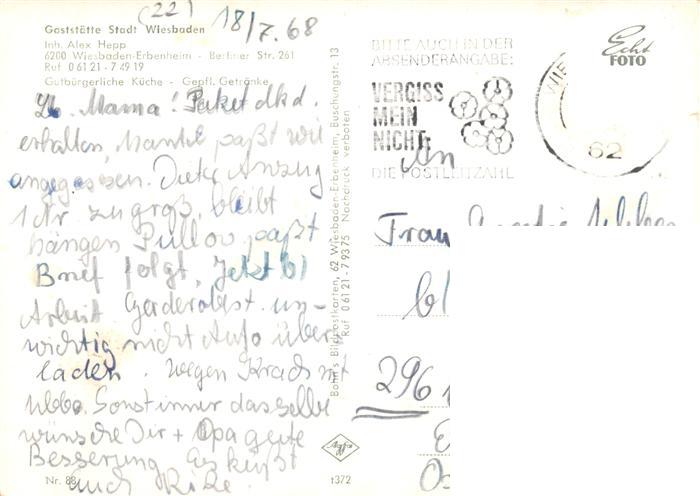 (22) 18/7.68
Gaststätte Stadt Wiesbaden
Inh. Alex Hepp
6200 Wiesbaden-Erbenheim - Berliner Str. 261
Ruf 0 61 21 - 7 49 19
Gutbürgerliche Küche - Gepfl. Getränke
Lb. Mama! Paket dkd.
erhalten, Mantel paßt wie
angegossen. Dieter Anzug
1 Nr zu groß, bleibt
hängen Pullov paßt
Brief folgt, Jetzt bl
Arbeit Garderobest. un-
wichtig nicht Auto über-
laden. Wegen Krach mt
Sonst immer dasselbe
wünsche Dir + Opa gute
Besserung Es küßt
auch
Nr. 88
t372
Bohm's Bildpostkarten, 62 Wiesbaden-Erbenheim, Buschungstr. 13
Ruf 0 61 21 - 7 93 75 Nachdruck verboten
Agfa
BITTE AUCH IN DER
ABSENDERANGABE:
VERGISS
MEIN
NICHT:
DIE POSTLEITZAHL
62
Echt
FOTO
An
Frau
296